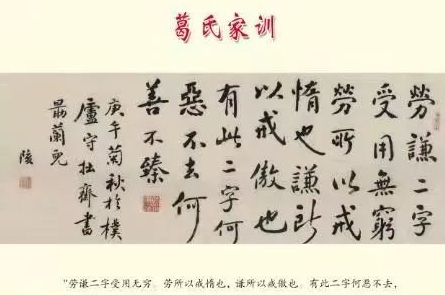 葛氏家训
勞謙二字
受用無窮
勞所以戒
惰也謙所
以戒傲也
有此二字何
惡不去何
善不臻
庚午菊秋於樸
廬守拙齋書
勗蘭兒
“劳谦二字受用无穷，劳所以戒惰也，谦所以戒傲也。有此二字何恶不去，